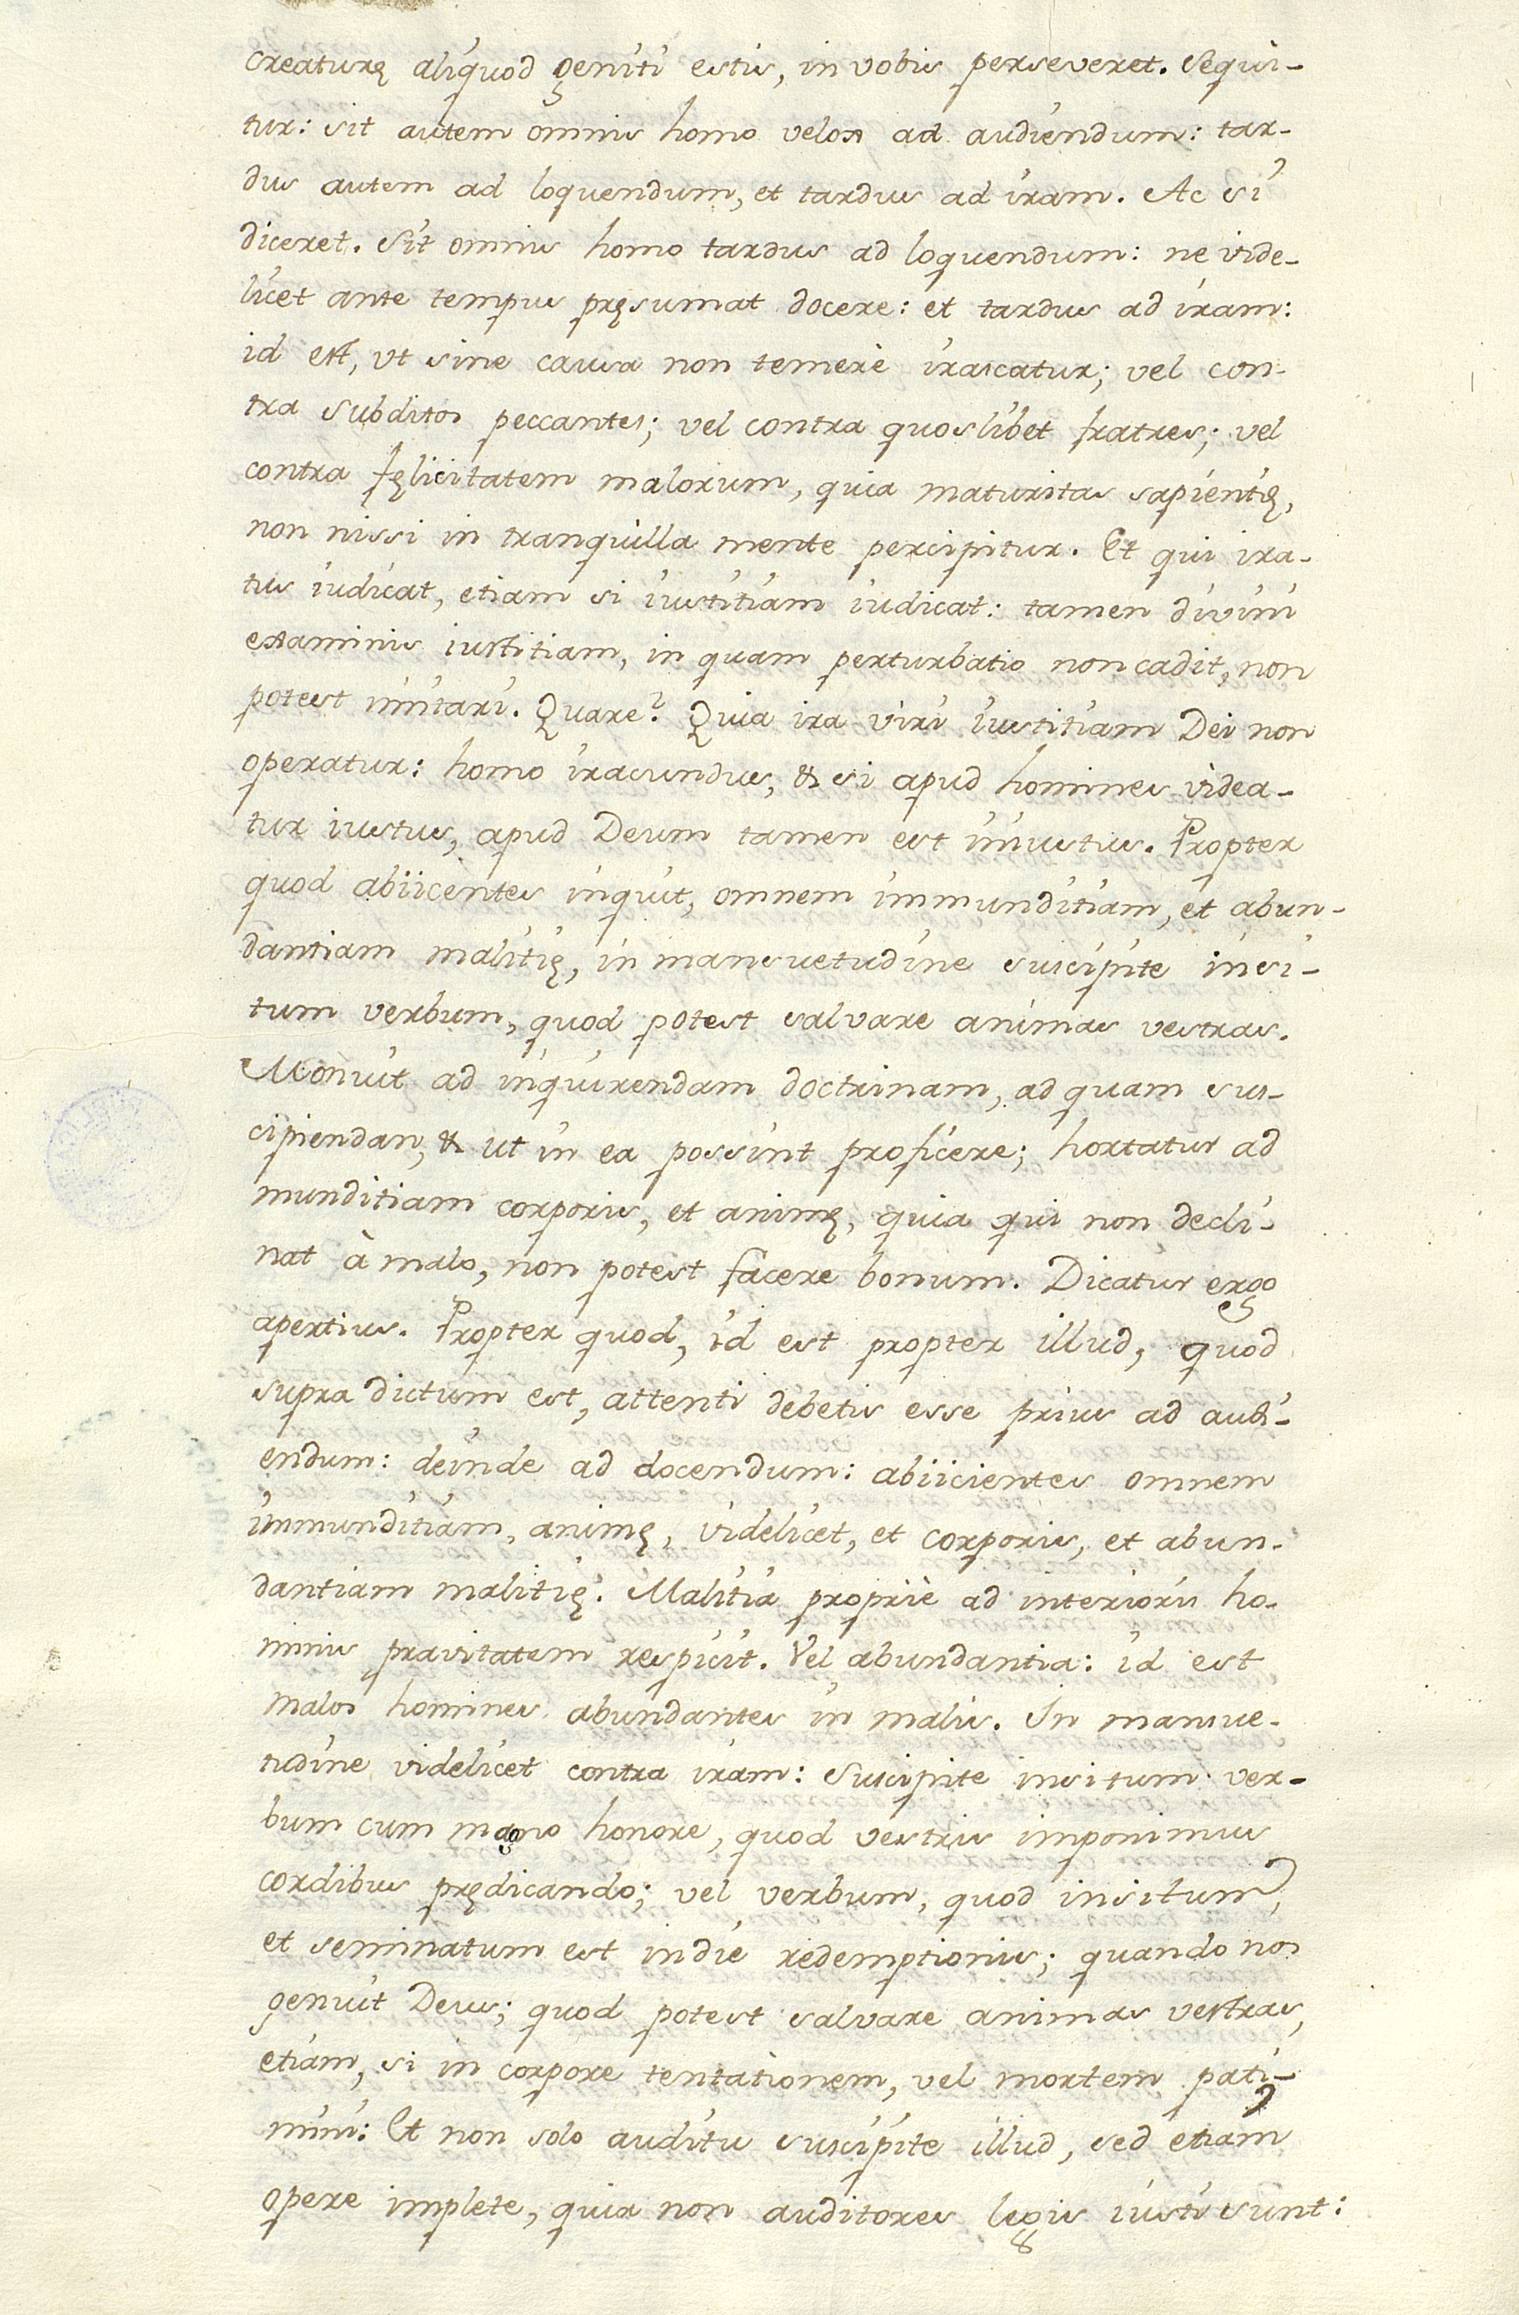 creaturę aliquod geniti estis, in vobis perseveret. Sequi-
tur: sit autem omnis homo velox ad audiendum: tar-
dus autem ad loquendum, et tardus ad iram. Ac si
diceret. Sit omnis homo tardus ad loquendum: ne vide-
licet ante tempus pręsumat docere: et tardus ad iram:
id est, vt sine causa non temerè irascatur; vel con-
tra subditos peccantes; vel contra quoslibet fratres; vel
contra fęlicitatem malorum, quia maturitas sapientię,
non nissi in tranquilla mente percipitur. Et qui ira-
tus iudicat, etiam si iustitiam iudicat: tamen divini
examinis iustitiam, in quam perturbatio non cadit, non
potest imitari. Quare? Quia ira viri iustitiam Dei non
operatur: homo iracundus, & si apud homines videa-
tur iustus, apud Deum tamen est iniustus. Propter
quod abiicentes inquit, omnem immunditiam, et abun-
dantiam malitię, in mansuetudine suscipite insi-
tum verbum, quod potest salvare animas vestras.
Monuit ad inquirendam doctrinam, ad quam sus-
cipiendan, & ut in ea possint proficere; hortatur ad
munditiam corporis, et animę, quia qui non decli-
nat à malo, non potest facere bonum. Dicatur ergo
apertius. Propter quod, id est propter illud, quod
supra dictum est, attenti debetis esse prius ad audi-
endum: deinde ad docendum: abiicientes omnem
immunditiam, animę, videlicet, et corporis, et abun-
dantiam malitię. Malitia propriè ad interioris ho-
minis pravitatem respicit. Vel abundantia: id est
malos homines abundantes in malis. In mansue-
tudine videlicet contra iram: Suscipite insitum ver-
bum cum magno honore, quod vestris imponimus
cordibus prędicando; vel verbum, quod insitum,
et seminatum est in die redemptionis; quando nos
genuit Deus; quod potest salvare animas vestras,
etiam, si in corpore tentationem, vel mortem pati-
mini: Et non solo auditu suscipite illud, sed etiam
opere implete, quia non auditores legis iusti sunt: